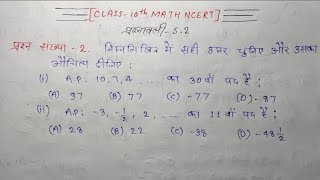 [CLASS-10th MATH NCERT]
प्रश्नावली-5.2
प्रश्न संख्या-2. निम्नलिखित में सही उत्तर चुनिए और उसका
औचित्य दीजिए :
(i) A.P: 10, 7, 4 ..... का 30वाँ पद है :
(A) 97 (B) 77 (C) -77 (D) -87
(ii) A.P: -3, -1/2, 2 ..... का 11वाँ पद है :
(A) 28 (B) 22 (C) -38 (D) -48 1/2